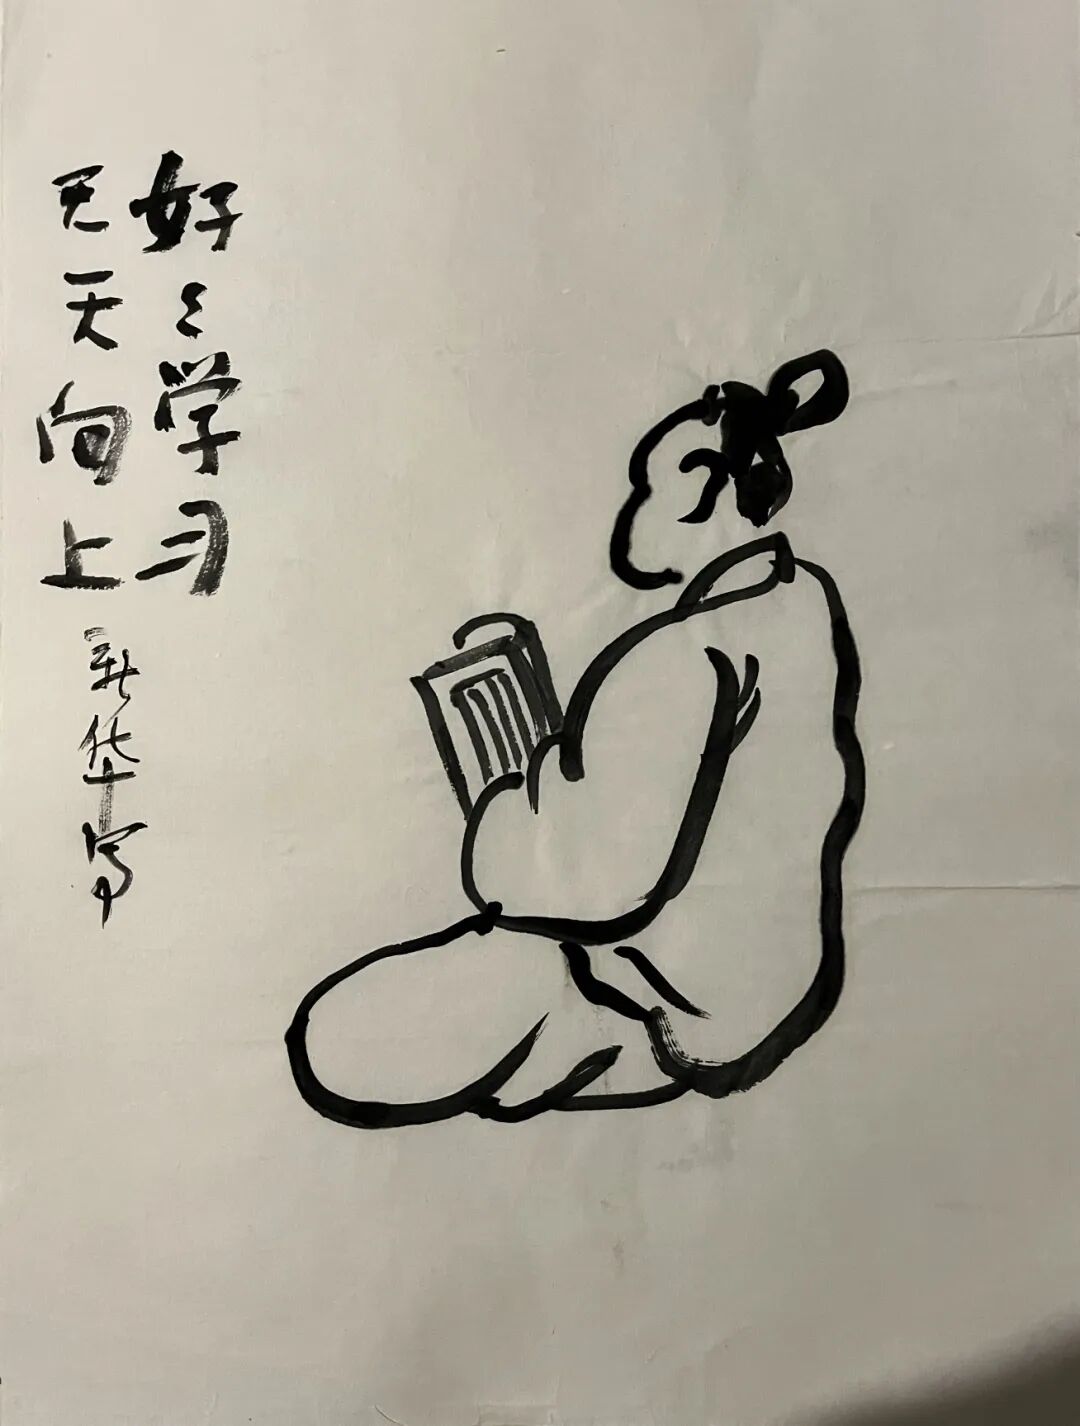 好〻学习
天天向上
新华写